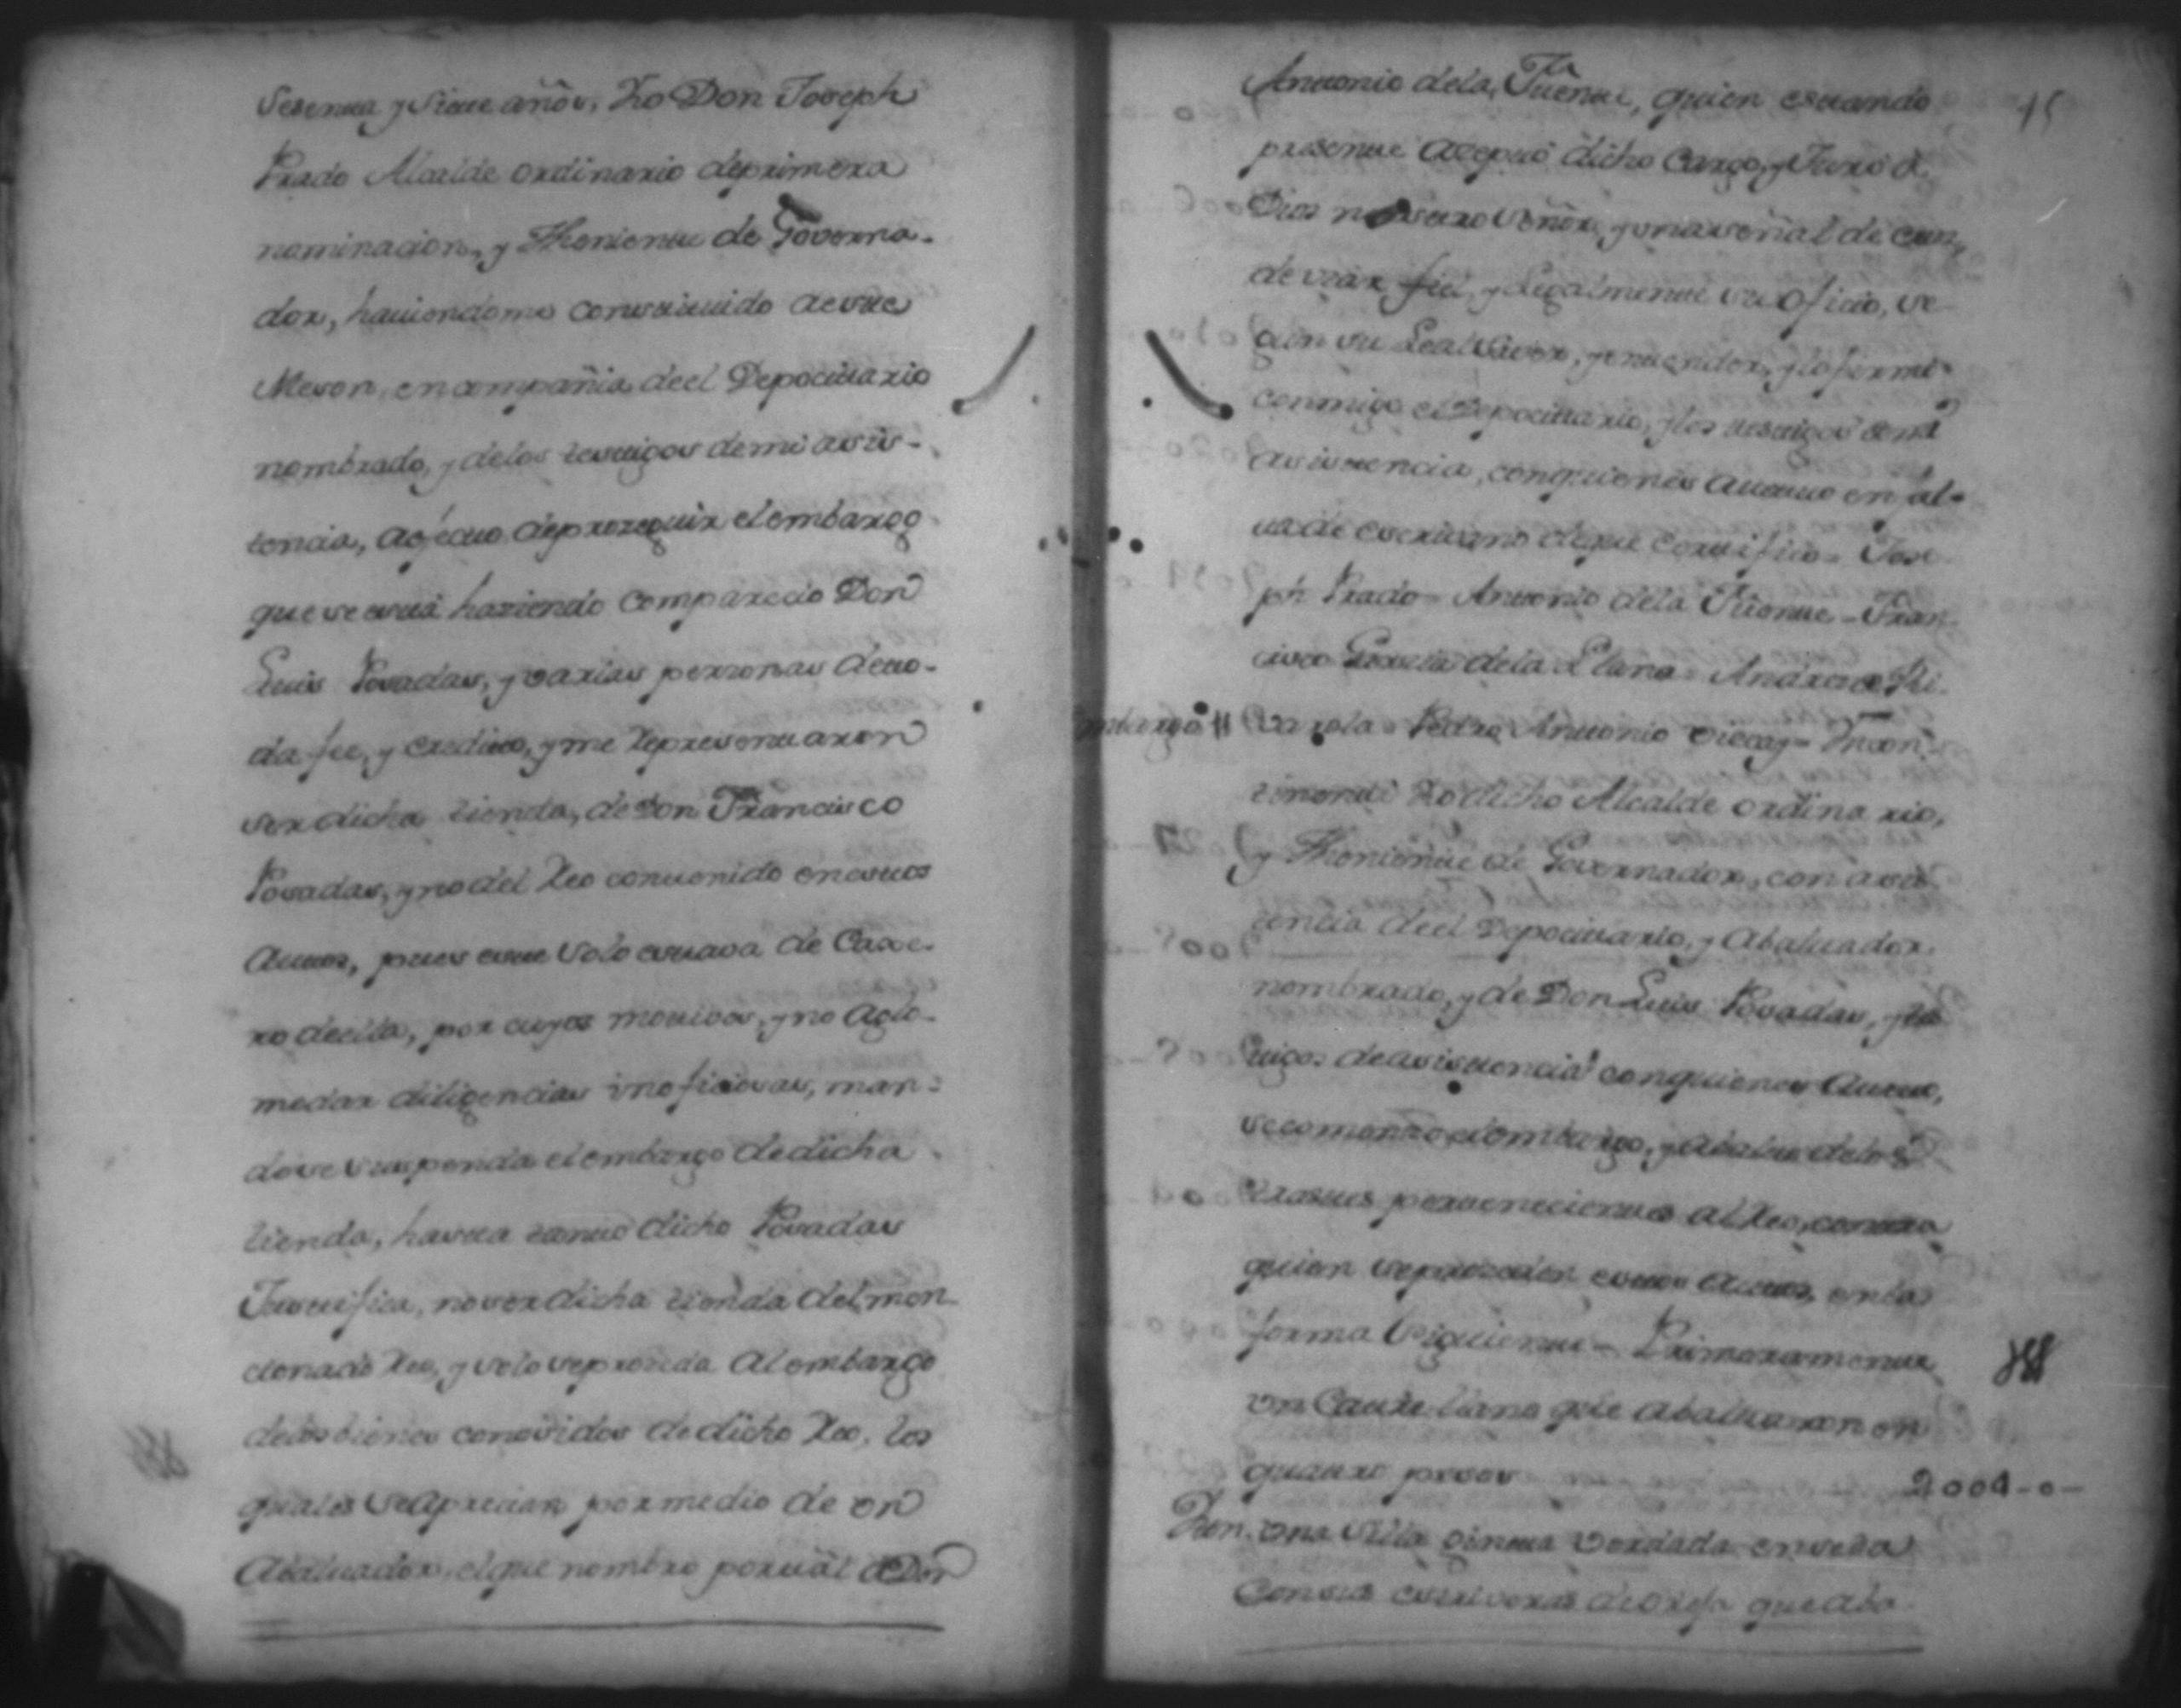 sesenta y siete años, Yo Don Joseph
Prado Alcalde ordinario deprimera
nominacion, y Theniente de Governa-
dor, haviendome constituido aeste
Meson, en compañia deel Depocitario
nombrado, y delos testigos demi asis-
tencia, aefecto deprozeguir elembargo
que se está haziendo comparecio Don
Luis Posadas, y varias perzonas deto-
da fee, y credito, y me representaron
ser dicha tienda, de Don Francisco
Posadas, y no del Reo contenido en estos
Autos, pues este solo estava de Caxe-
ro deella, por cuyos motivos, y no aglo-
medar diligencias inoficiosas, man-
dose suspenda el embargo dedicha
tienda, hasta tanto dicho Posadas
Justifica, no ser dicha tienda del men-
cionado Reo, y solo seproceda al embargo
delos bienes conosidos de dicho Reo, los
quales se aprecian por medio de un
Abaluador, el que nombro por tal a Don
Antonio dela Fuente, quien estando
15
presente acepto dicho Cargo, y Juró á
Dios nuestro Señor, y una señal de cruz,
de usar fiel, y Legalmente su oficio, se-
gun su Leal saver, y entender, y lo firmó
conmigo el Depocitario, y los testigos de mi
asistencia, con quienes actuo en fal-
ta de escrivano de que certifico = Jose-
ph Prado = Antonio dela Fuente = Fran-
cisco Garcia dela Llana = Andres de Ri-
varola = Pedro Antonio = Incon-
embargo
tinenti Yo dicho Alcalde ordinario,
y Theniente de Governador, con asis-
tencia deel Depocitario, y Abaluador
nombrado, y de Don Luis Posadas, y tes-
tigos de asistencia con quienes Actuo,
se comenzo el embargo, y Abaluo delos
trastes pertenecientes al Reo, contra
quien seproceden estos Autos, en la
forma siguiente = Primeramente
un Catre llano qe. le abaluaron en
quatro pesos
2004-0-
Yten. una Silla gineta vordada en seda
Con sus estriveras que aba-